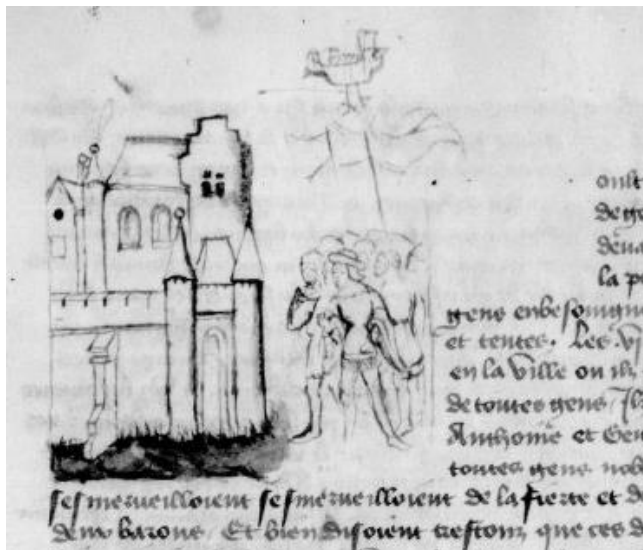 oult
de
deva
la p
gens enbesoingne
et tentes. Les vi
en la ville ou ilz
de toutes gens. Il
Anthoine et
toutes gens nob
ses merveilloient ses merveilloient de la fierte et d
de ces barons. Et bien disoient trestous que ces d